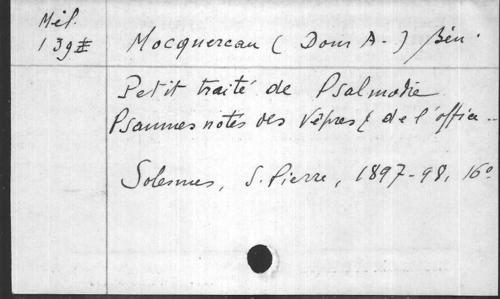 Mél.
139 II Mocquereau (Dom A-) Bén.
Petit traité de Psalmodie
Psaumes notés des Vêpres & de l'office...
Solesmes, S. Pierre, 1897-98, 16º